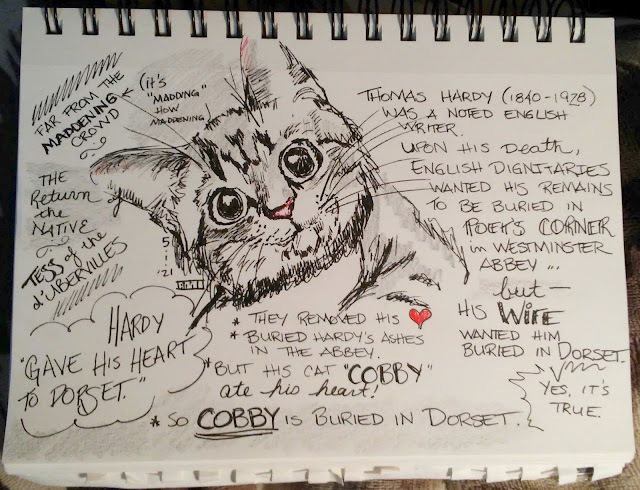 FAR FROM THE
MADDENING
CROWD
(it's
"MADDING"
HOW
MADDENING)
THE
Return
the
NATIVE
TESS of the
d'UBERVILLES
5
1
21
THOMAS HARDY (1840-1928)
WAS A NOTED ENGLISH
WRITER.
UPON HIS Death,
ENGLISH DIGNITARIES
WANTED HIS REMAINS
TO BE BURIED IN
POET'S CORNER
in WESTMINSTER
ABBEY ...
but -
HIS WIFE
WANTED HIM
BURIED IN DORSET.
YES, IT'S
TRUE.
HARDY
"GAVE HIS HEART
TO DORSET."
* THEY REMOVED HIS ❤
* BURIED HARDY'S ASHES
IN THE ABBEY.
* BUT HIS CAT "COBBY"
ate his heart!
* SO COBBY IS BURIED IN DORSET.